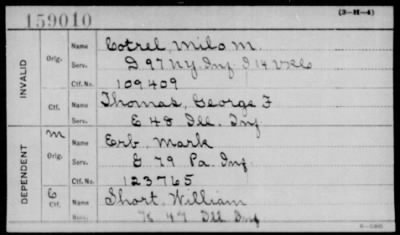 159010
(3-H-4)
INVALID
Orig. Name Cotrel, Milo M.
Serv. D 97 N.Y. Inf I 14 V.R.C
Ctf. No. 109409
Ctf. Name Thomas, George F
Serv. E 48 Ill. Inf
DEPENDENT
M Orig. Name Erb, Mark
Serv. G 79 Pa. Inf
Ctf. No. 123765
C Ctf. Name Short, William
Serv. K 47 Ill Inf